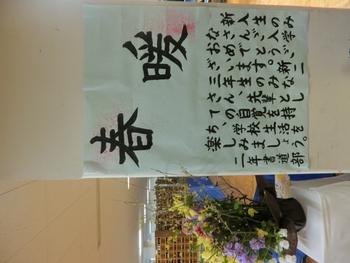 春暖
新入生のみ
なさん、ご入学
おめでとうご
ざいます。新二、
三年生のみな
さん、先輩とし
ての自覚を持
ち、学校生活を
楽しみましょう。
二年書道部